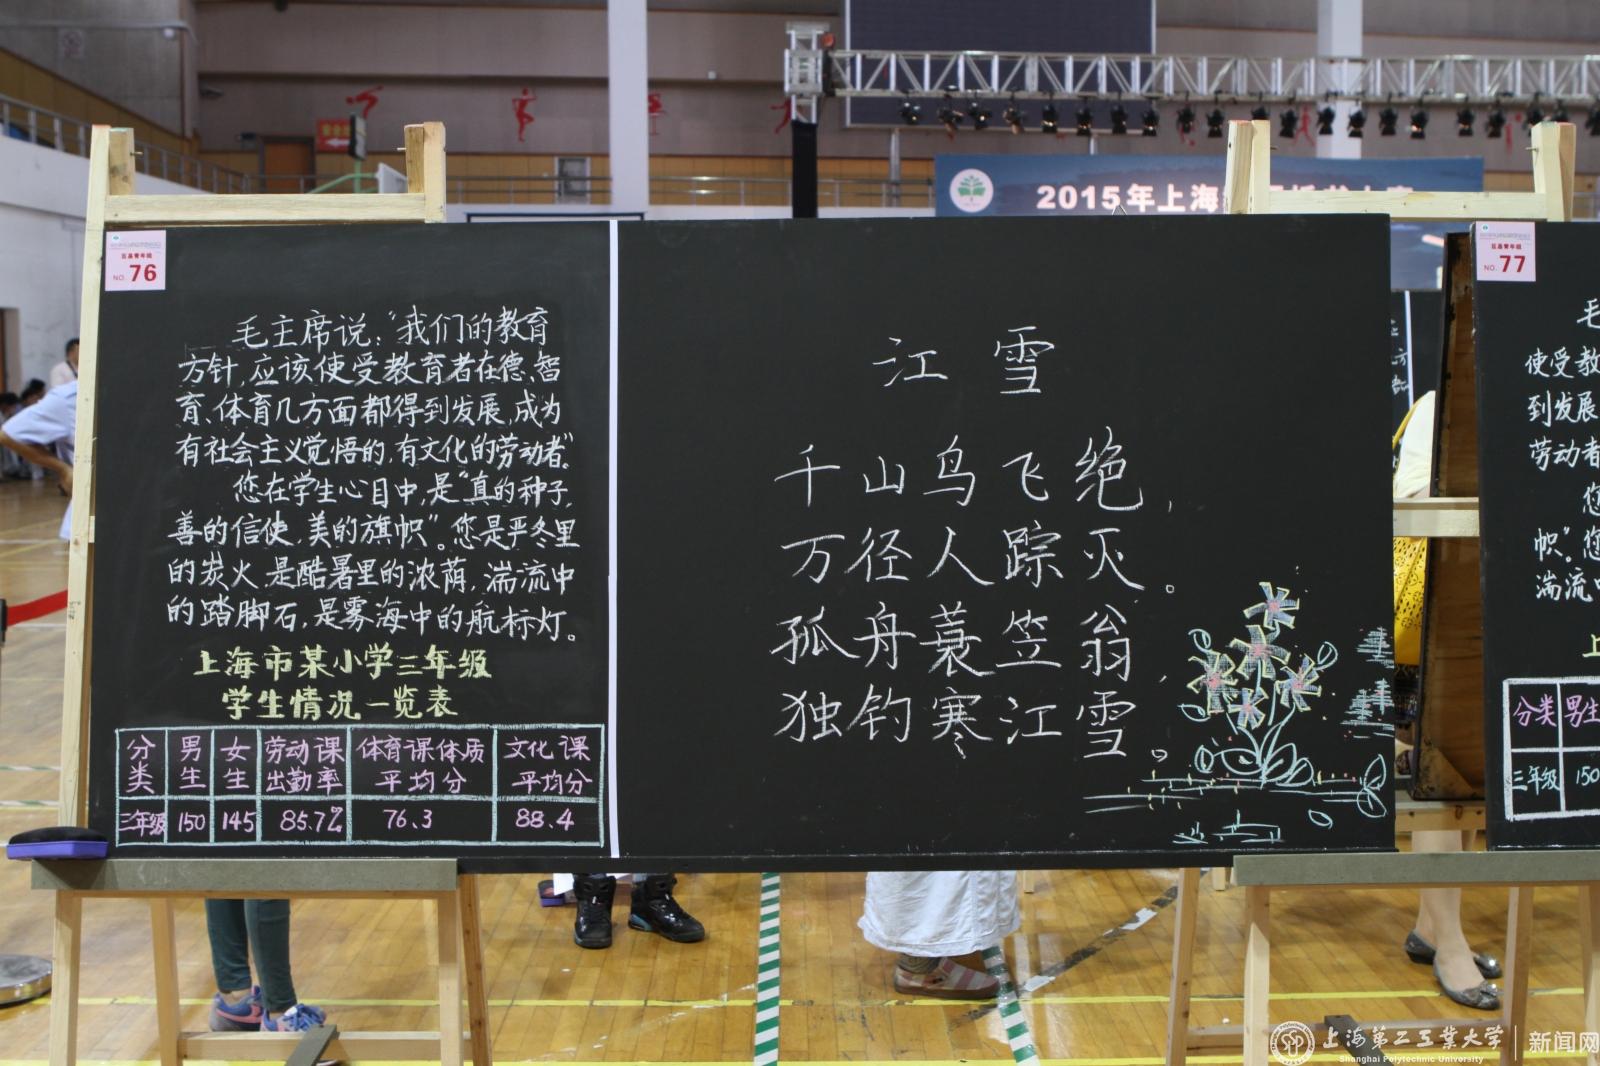 2015年上海
NO. 76
毛主席说："我们的教育
方针,应该使受教育者在德、智
育、体育几方面都得到发展,成为
有社会主义觉悟的,有文化的劳动者"。
您在学生心目中,是"真的种子,
善的信使,美的旗帜"。您是严冬里
的炭火,是酷暑里的浓荫,湍流中
的踏脚石,是雾海中的航标灯。
上海市某小学三年级
学生情况一览表
分类 男生 女生 劳动课出勤率 体育课体质平均分 文化课平均分
三年级 150 145 85.7% 76.3 88.4
江雪
千山鸟飞绝,
万径人踪灭。
孤舟蓑笠翁,
独钓寒江雪。
NO. 77
毛
使受教
到发展
劳动者
您
帜"。您
湍流中
上
分类 男生
三年级 150
上海第二工业大学 新闻网
Shanghai Polytechnic University